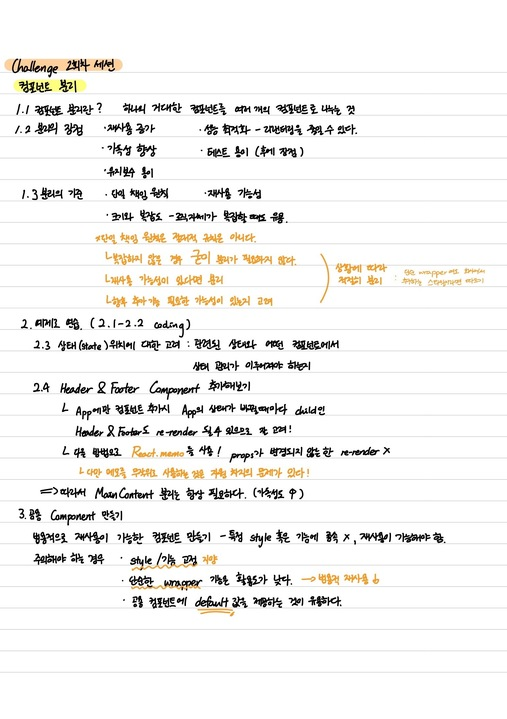 Challenge 2회차 세션
컴포넌트 분리
1.1 컴포넌트 분리란? 하나의 거대한 컴포넌트를 여러 개의 컴포넌트로 나누는 것
1.2 분리의 장점 · 재사용 증가 · 성능 최적화 - 리렌더링을 줄일 수 있다.
· 가독성 향상 · 테스트 용이 (후에 장점)
· 유지보수 용이
1.3 분리의 기준 · 단일 책임 원칙 · 재사용 가능성
· 크기와 복잡도 - 로직 자체가 복잡할 때도 유용.
*단일 책임 원칙은 절대적 규칙은 아니다.
└ 복잡하지 않을 경우 굳이 분리가 필요하지 않다.
└ 재사용 가능성이 있다면 분리
└ 향후 추가 기능 필요한 가능성이 있는지 고려
상황에 따라
적절히 분리 :
wrapper
2. 예제로 연습. (2.1-2.2 coding)
2.3 상태(state) 위치에 대한 고려 : 관련된 상태와 어떤 컴포넌트에서
상태 관리가 이루어져야 하는지
2.4 Header & Footer Component 추가해보기
└ App에만 컴포넌트 추가시 App의 상태가 바뀔때마다 child인
Header & Footer도 re-render 될 수 있으므로 잘 고려!
└ 다른 방법으로 React.memo를 사용! props가 변경되지 않는 한 re-render X
└ 다만 메모를 무작위로 사용하는 것은 자원 차지의 문제가 있다!
=> 따라서 MainContent 분리는 항상 필요하다. (가독성도 ↑)
3. 공용 Component 만들기
범용적으로 재사용이 가능한 컴포넌트 만들기 - 특정 style 혹은 기능에 종속 X, 재사용이 가능해야 함.
주의해야 하는 경우 · style/기능 고정 지양
· 단순한 wrapper 기능은 활용도가 낮다. → 범용적 재사용
· 공용 컴포넌트에 default 값을 제공하는 것이 유용하다.